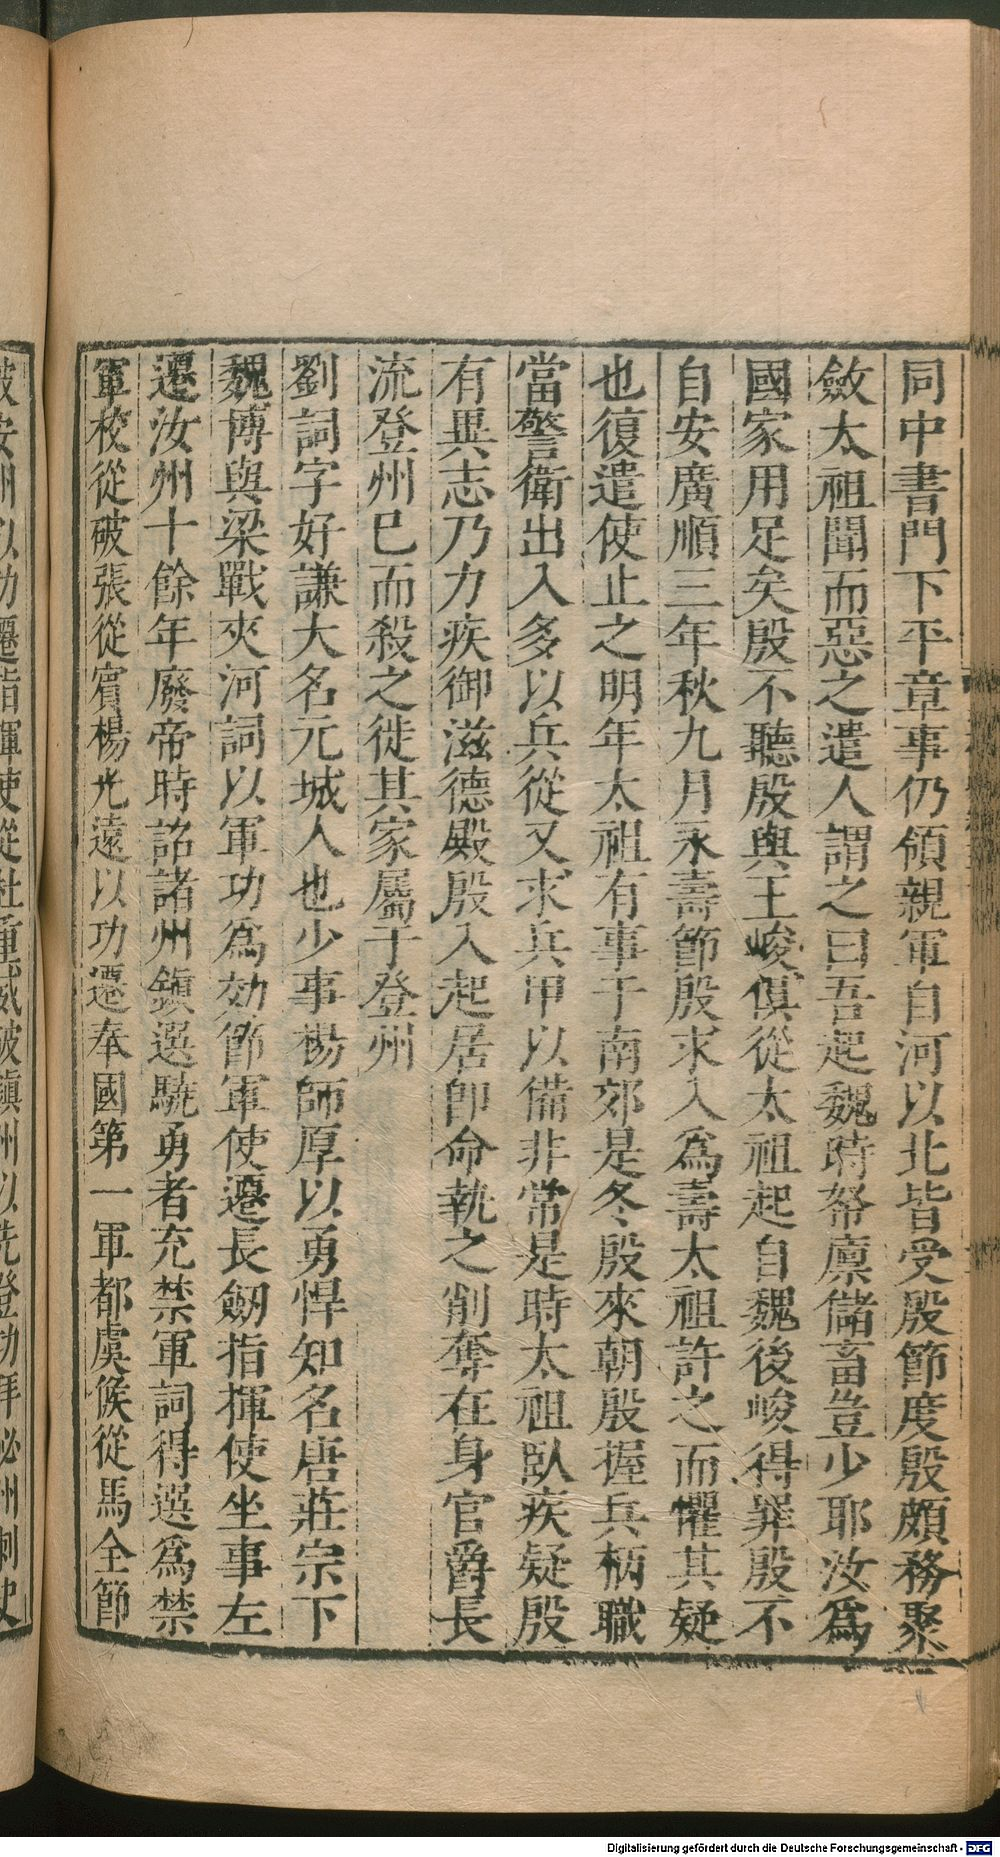 同中書門下平章事仍領親軍自河以北皆受殷節度殷頗務聚
斂太祖聞而惡之遣人謂之曰吾起魏時帑廪儲畜豈少耶汝爲
國家用足矣殷不聽殷與王峻俱從太祖起自魏後峻得罪殷不
自安廣順三年秋九月永壽節殷求入爲壽太祖許之而懼其疑
也復遣使止之明年太祖有事于南郊是冬殷來朝殷握兵柄職
當警衛出入多以兵從又求兵甲以備非常是時太祖臥疾疑殷
有異志乃力疾御滋德殿殷入起居即命執之削奪在身官爵長
流登州巳而殺之徙其家屬于登州
劉詞字好謙大名元城人也少事楊師厚以勇悍知名唐莊宗下
魏博與梁戰夾河詞以軍功爲効節軍使遷長劒指揮使坐事左
遷汝州十餘年廢帝時詔諸州鎭選驍勇者充禁軍詞得選爲禁
軍校從破張從賓楊光遠以功遷奉國第一軍都虞候從馬全節
破安州以功遷指揮使從杜重威破鎭州以先登功拜泌州刺史
Digitalisierung gefördert durch die Deutsche Forschungsgemeinschaft - DFG